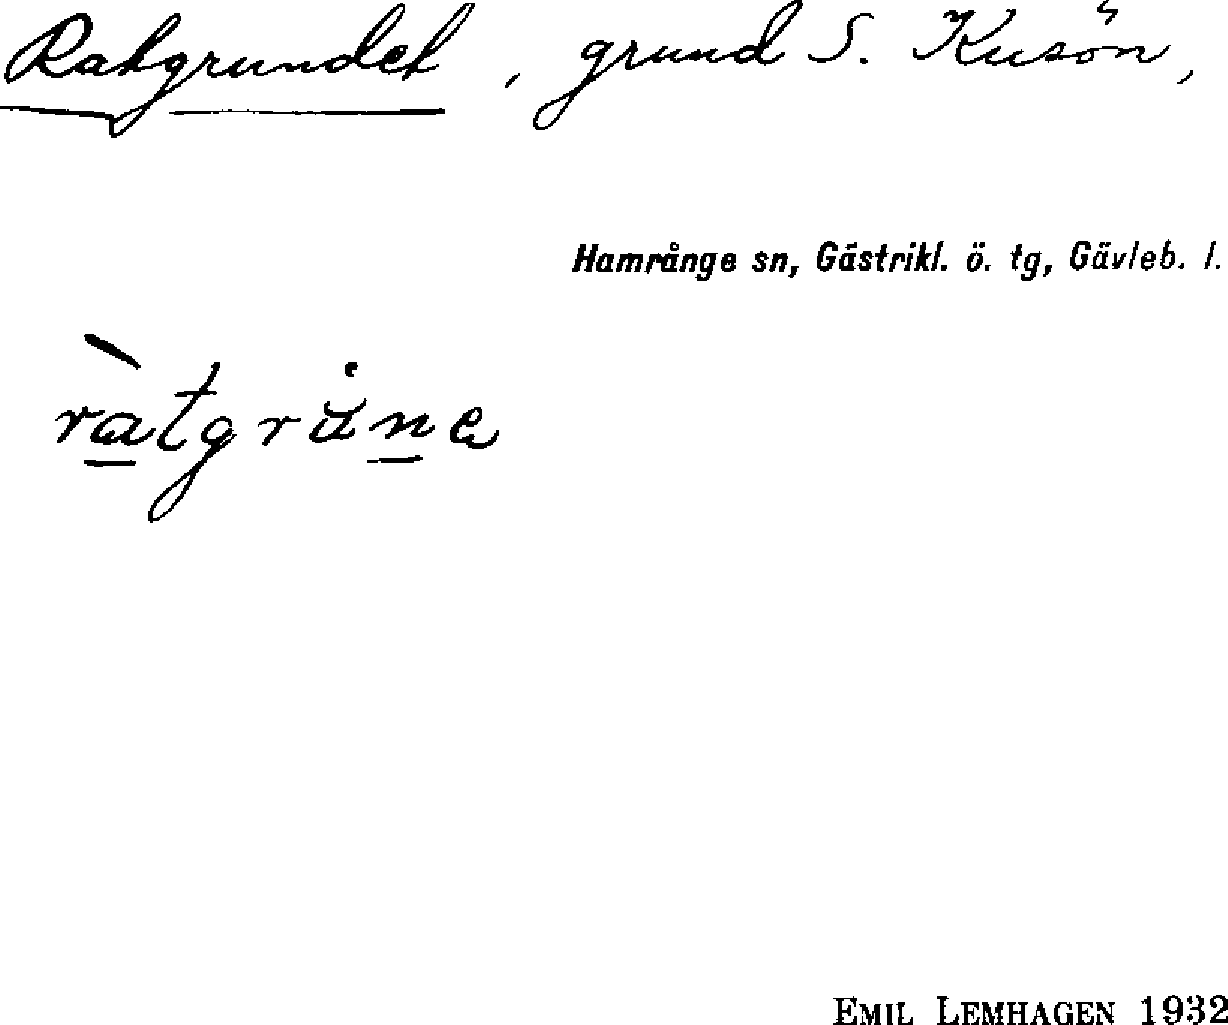 Ratgrundet, grund S. Kusön,
Hamrånge sn, Gästrikl. ö. tg, Gävleb. l.
ràtgru̇ne
EMIL LEMHAGEN 1932